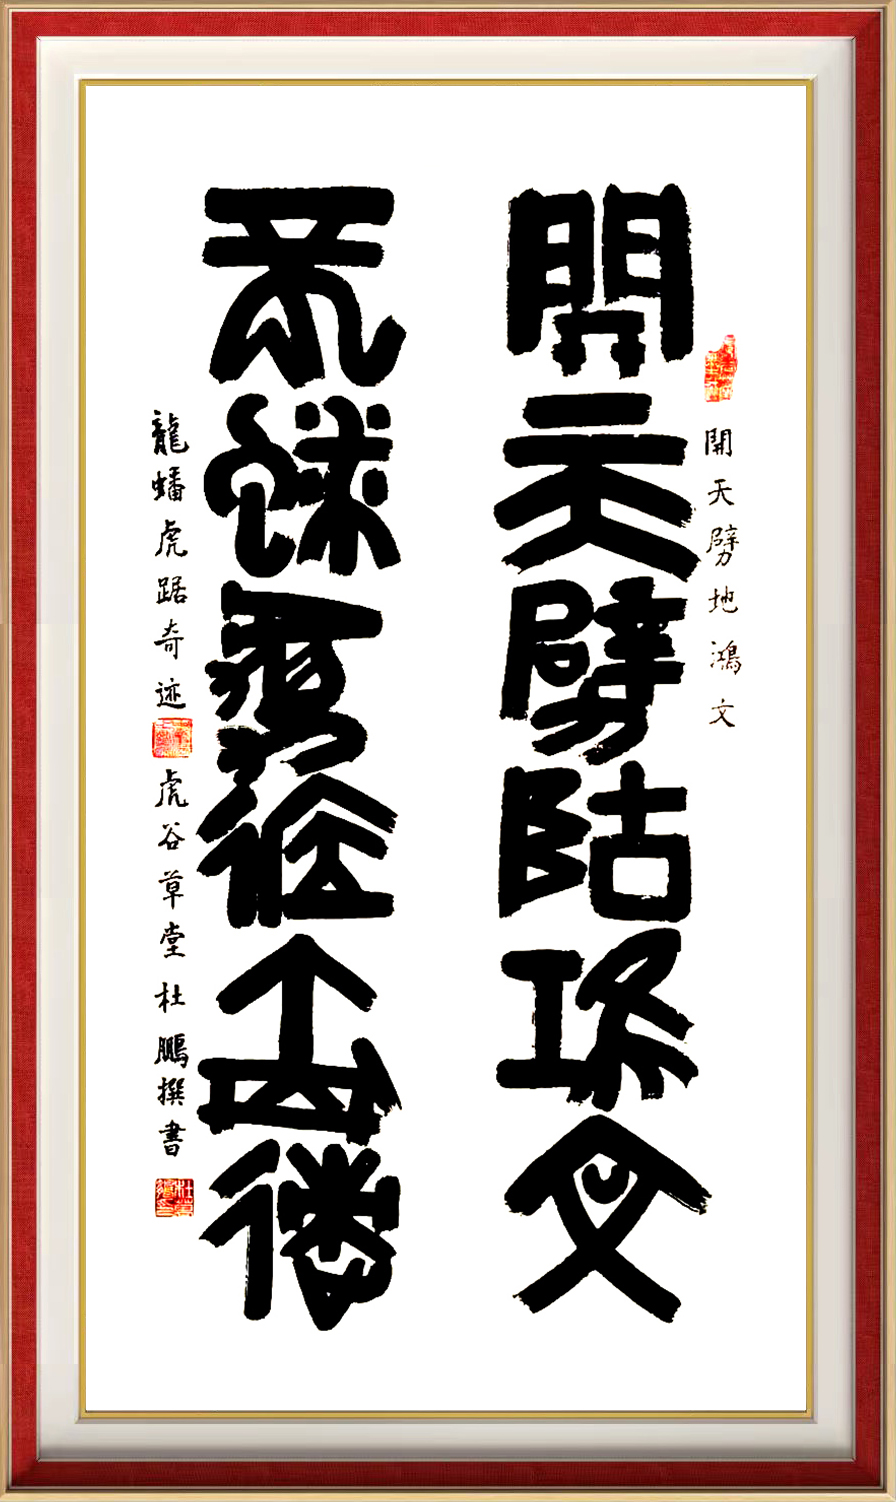 開天劈地鴻文
開天劈地鴻文
龍蟠虎踞奇迹
龍蟠虎踞奇迹 虎谷草堂杜鵬撰書